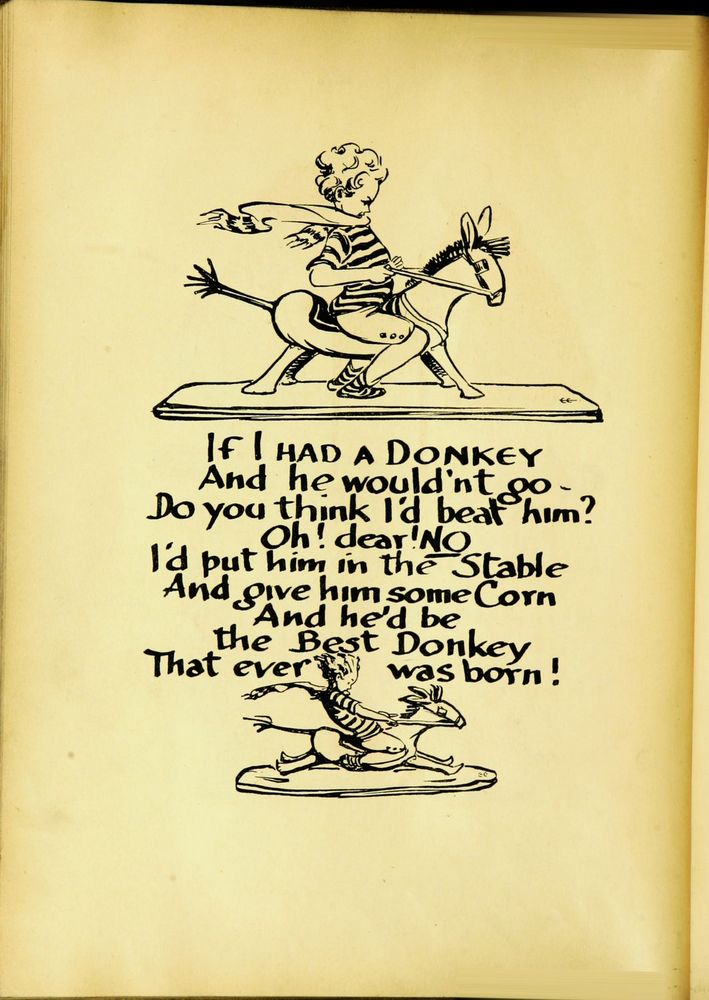 If I HAD A DONKEY
And he would'nt go -
Do you think I'd beat him?
Oh! dear! NO
I'd put him in the Stable
And give him some Corn
And he'd be
the Best Donkey
That ever was born!